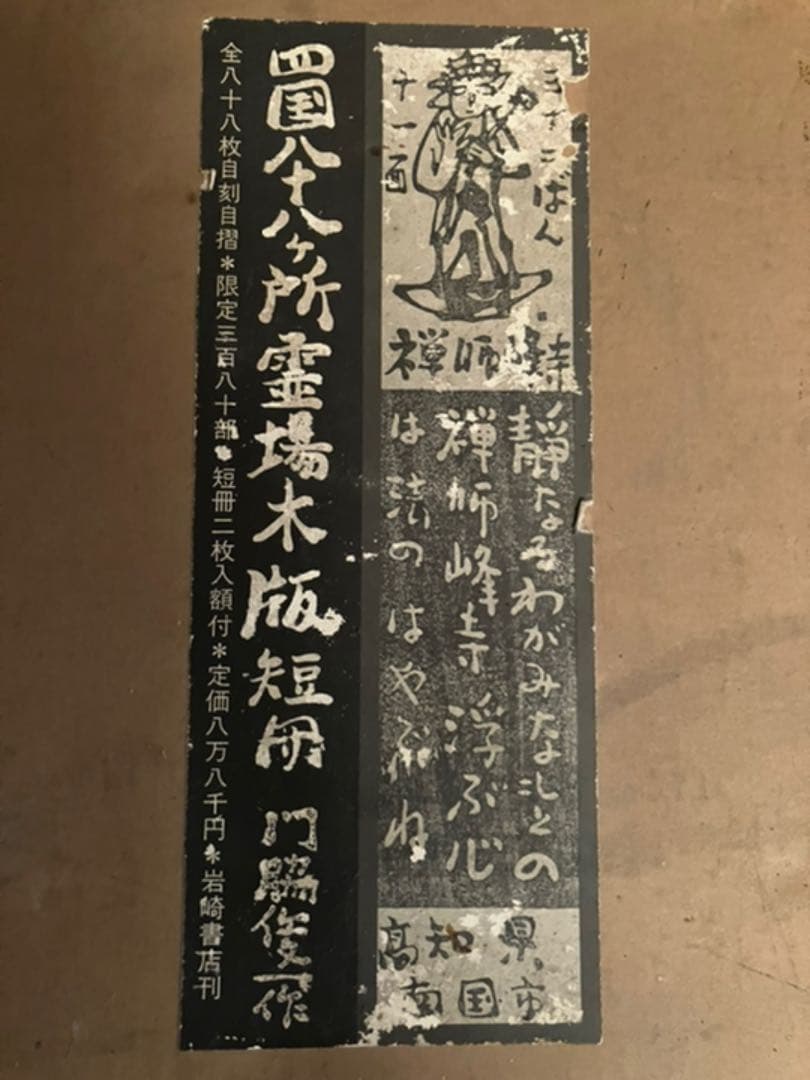 三十二ばん
十一面
禅師峰寺
静なるわがみなもとの
禅師峰寺浮ぶ心
は法のはやぶね
高知県
南国市
四国八十八ヶ所霊場木版短冊 門脇俊一作
全八十八枚自刻自摺＊限定三百八十部＊短冊二枚入額付＊定価八万八千円＊岩崎書店刊